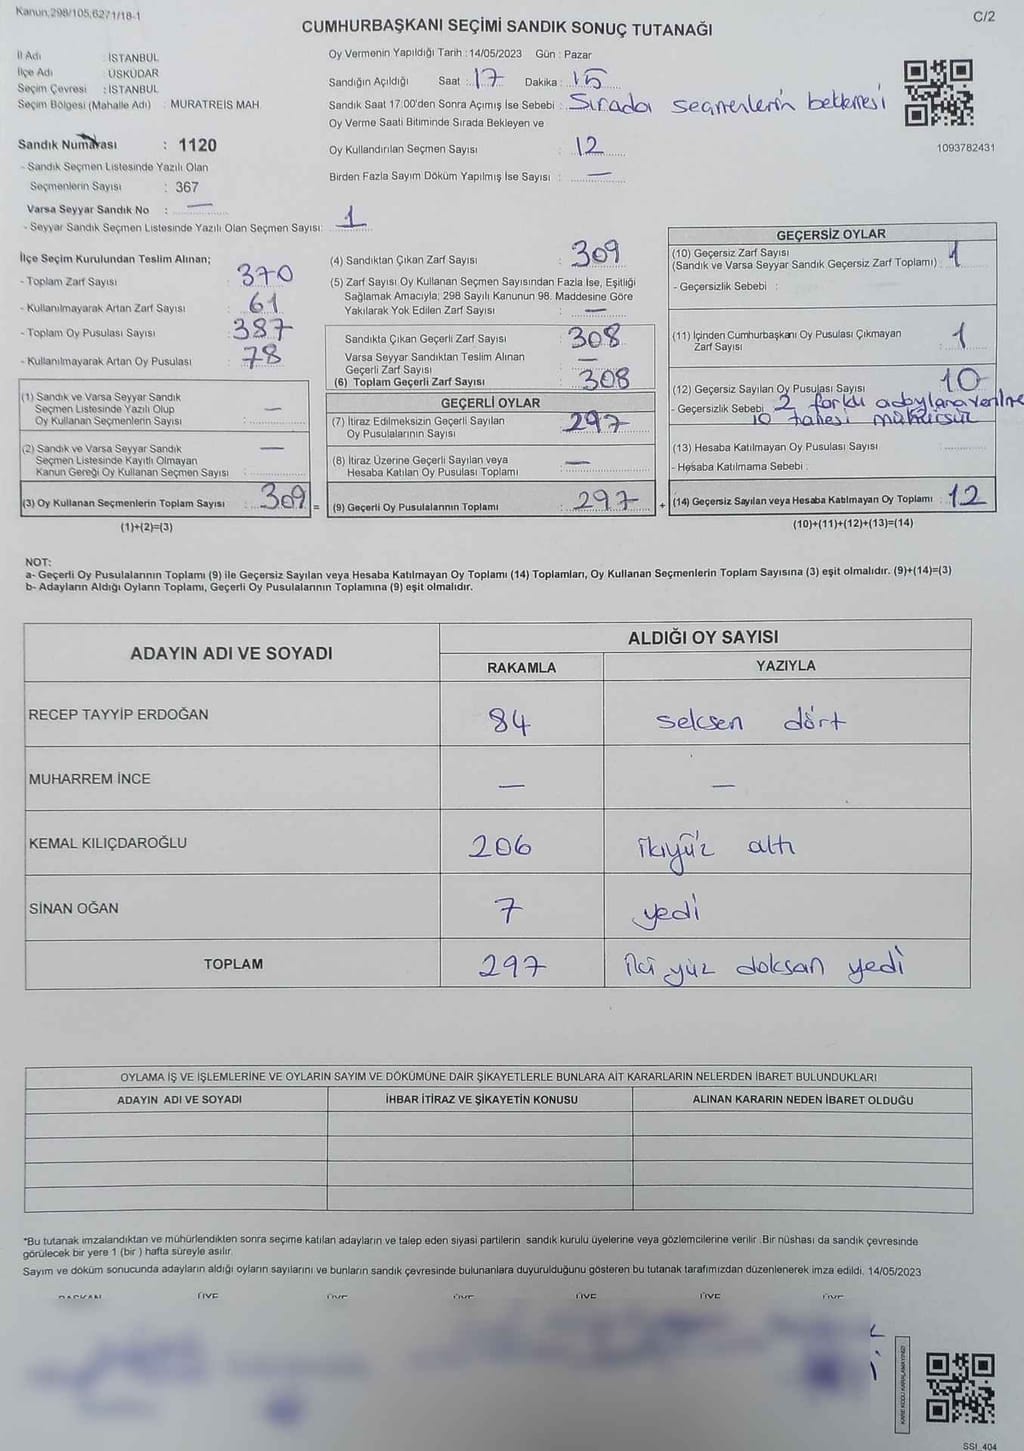 Kanun,298/105,6271/18-1
C/2
CUMHURBAŞKANI SEÇİMİ SANDIK SONUÇ TUTANAĞI
İl Adı : İSTANBUL
İlçe Adı : ÜSKÜDAR
Seçim Çevresi : İSTANBUL
Seçim Bölgesi (Mahalle Adı) : MURATREİS MAH.
Sandık Numarası : 1120
- Sandık Seçmen Listesinde Yazılı Olan
Seçmenlerin Sayısı : 367
Varsa Seyyar Sandık No : —
- Seyyar Sandık Seçmen Listesinde Yazılı Olan Seçmen Sayısı: 1
Oy Vermenin Yapıldığı Tarih : 14/05/2023 Gün : Pazar
Sandığın Açıldığı Saat : 17 Dakika : 15
Sandık Saat 17:00'den Sonra Açımış İse Sebebi : Sırada seçmenlerin beklemesi
Oy Verme Saati Bitiminde Sırada Bekleyen ve
Oy Kullandırılan Seçmen Sayısı : 12
Birden Fazla Sayım Döküm Yapılmış İse Sayısı : —
1093782431
İlçe Seçim Kurulundan Teslim Alınan;
- Toplam Zarf Sayısı : 370
- Kullanılmayarak Artan Zarf Sayısı : 61
- Toplam Oy Pusulası Sayısı : 387
- Kullanılmayarak Artan Oy Pusulası : 78
(1) Sandık ve Varsa Seyyar Sandık
Seçmen Listesinde Yazılı Olup
Oy Kullanan Seçmenlerin Sayısı : —
(2) Sandık ve Varsa Seyyar Sandık
Seçmen Listesinde Kayıtlı Olmayan
Kanun Gereği Oy Kullanan Seçmen Sayısı : —
(3) Oy Kullanan Seçmenlerin Toplam Sayısı : 309 =
(1)+(2)=(3)
(4) Sandıktan Çıkan Zarf Sayısı : 309
(5) Zarf Sayısı Oy Kullanan Seçmen Sayısından Fazla İse, Eşitliği
Sağlamak Amacıyla; 298 Sayılı Kanunun 98. Maddesine Göre
Yakılarak Yok Edilen Zarf Sayısı : —
Sandıkta Çıkan Geçerli Zarf Sayısı : 308
Varsa Seyyar Sandıktan Teslim Alınan
Geçerli Zarf Sayısı : —
(6) Toplam Geçerli Zarf Sayısı : 308
GEÇERLİ OYLAR
(7) İtiraz Edilmeksizin Geçerli Sayılan
Oy Pusulalarının Sayısı : 297
(8) İtiraz Üzerine Geçerli Sayılan veya
Hesaba Katılan Oy Pusulası Toplamı : —
(9) Geçerli Oy Pusulalarının Toplamı : 297 +
GEÇERSİZ OYLAR
(10) Geçersiz Zarf Sayısı
(Sandık ve Varsa Seyyar Sandık Geçersiz Zarf Toplamı) : 1
- Geçersizlik Sebebi :
(11) İçinden Cumhurbaşkanı Oy Pusulası Çıkmayan
Zarf Sayısı : 1
(12) Geçersiz Sayılan Oy Pusulası Sayısı : 10
- Geçersizlik Sebebi : 2 farklı
10 tanesi mühürsüz
(13) Hesaba Katılmayan Oy Pusulası Sayısı :
- Hesaba Katılmama Sebebi :
(14) Geçersiz Sayılan veya Hesaba Katılmayan Oy Toplamı : 12
(10)+(11)+(12)+(13)=(14)
NOT:
a- Geçerli Oy Pusulalarının Toplamı (9) ile Geçersiz Sayılan veya Hesaba Katılmayan Oy Toplamı (14) Toplamları, Oy Kullanan Seçmenlerin Toplam Sayısına (3) eşit olmalıdır. (9)+(14)=(3)
b- Adayların Aldığı Oyların Toplamı, Geçerli Oy Pusulalarının Toplamına (9) eşit olmalıdır.
ADAYIN ADI VE SOYADI
ALDIĞI OY SAYISI
RAKAMLA YAZIYLA
RECEP TAYYİP ERDOĞAN 84 seksen dört
MUHARREM İNCE — —
KEMAL KILIÇDAROĞLU 206 ikiyüz altı
SİNAN OĞAN 7 yedi
TOPLAM 297 iki yüz doksan yedi
OYLAMA İŞ VE İŞLEMLERİNE VE OYLARIN SAYIM VE DÖKÜMÜNE DAİR ŞİKAYETLERLE BUNLARA AİT KARARLARIN NELERDEN İBARET BULUNDUKLARI
ADAYIN ADI VE SOYADI İHBAR İTİRAZ VE ŞİKAYETİN KONUSU ALINAN KARARIN NEDEN İBARET OLDUĞU
*Bu tutanak imzalandıktan ve mühürlendikten sonra seçime katılan adayların ve talep eden siyasi partilerin sandık kurulu üyelerine veya gözlemcilerine verilir .Bir nüshası da sandık çevresinde
görülecek bir yere 1 (bir ) hafta süreyle asılır.
Sayım ve döküm sonucunda adayların aldığı oyların sayılarını ve bunların sandık çevresinde bulunanlara duyurulduğunu gösteren bu tutanak tarafımızdan düzenlenerek imza edildi. 14/05/2023
BAŞKAN ÜYE ÜYE ÜYE ÜYE ÜYE ÜYE
KARE KODU KARALAMAYINIZ!
SSI_404